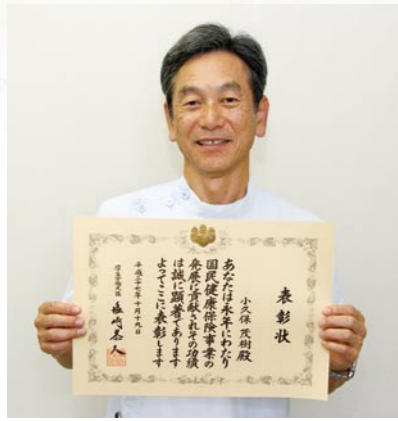 表彰状
小久保 茂樹殿
あなたは永年にわたり
国民健康保険事業の
発展に貢献されその功績
は誠に顕著であります
よってここに表彰します
平成二十七年十月十九日
厚生労働大臣 塩崎恭久